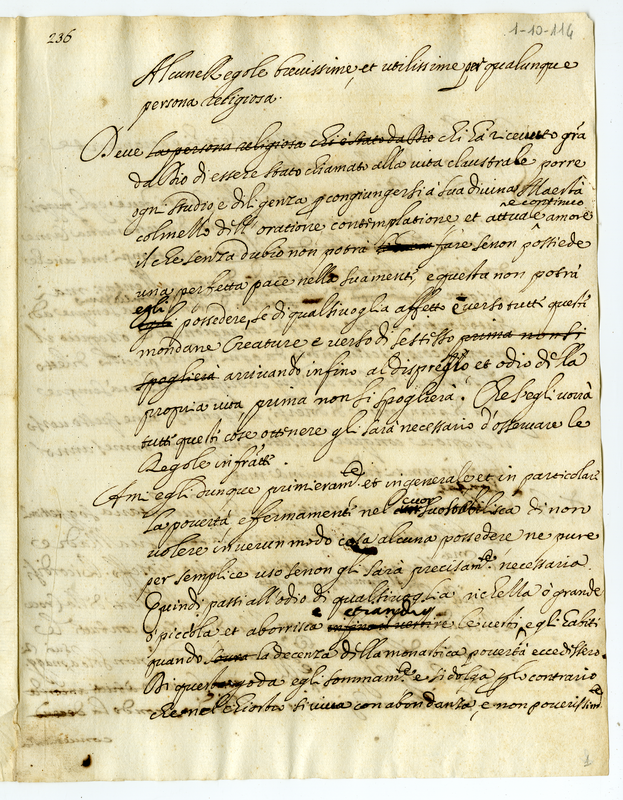 236
1-10-114
Alcune Regole brevissime, et utilissime per qualunque
persona religiosa.
Deve la persona religiosa chi è stato da Dio chi hà ricevuto gra
da Dio di essere stato chiamato alla vita claustrale porre
ogni studio e diligenza p congiungersi à Sua divina Maestà
e continuo
col mello dell'oratione contemplatione et attuale amore
il che senza dubio non potrà fare se non possiede
una perfetta pace nella sua mente, e questa non potrà
egli
possedere, se di qualsivoglia affetto e verso tutte queste
mondane Creature e verso di se stesso prima non si
spoglierà arrivando infino al dispregio et odio della
propria vita, prima non si spoglierà. Che s'egli vorrà
tutte queste cose ottenere gli sarà necessario d'osservare le
Regole infratte.
Ami egli dunque primieramte et in generale et in particolare
cuor
la povertà e fermamente nel suo stabilisca di non
volere in verun modo cosa alcuna possedere ne pure
per semplice uso se non gli sarà precisamte necessaria.
Quindi passi all'odio di qualsivoglia richella ò grande
ò piccola et aborrisca le vesti, e gli habiti
quando la decenza della monastica povertà eccedessero.
Di questo goda egli sommamte e si dolga p lo contrario
che nel chiostro si viva con abondanza, e non poverissimte
1